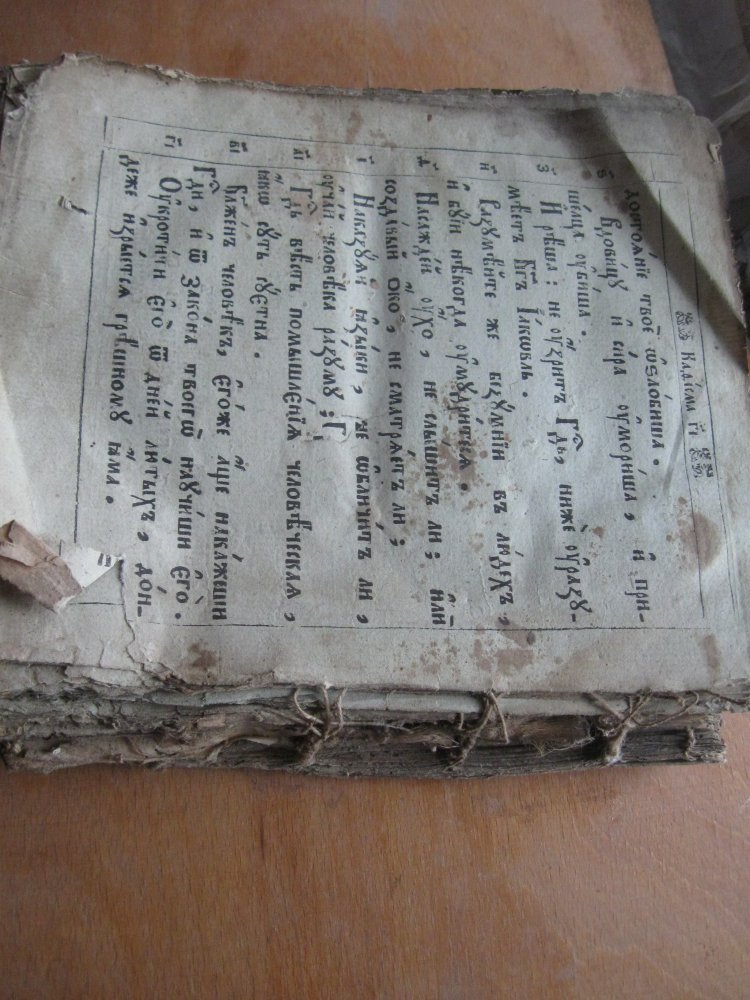 Каѳі́сма г҃і
достоѧ́нїе твоѐ ѡ҆ѕло́биша .
ѕ҃ Вдови́цꙋ и҆ си́ра ᲂу҆мори́ша , и҆ при-
ше́льца ᲂу҆би́ша .
з҃ И҆ рѣ́ша : не ᲂу҆́зритъ Гдⷭ҇ь , нижѐ ᲂу҆разꙋ-
мѣ́етъ Бг҃ъ І҆а́кѡвль .
и҃ Разꙋмѣ́йте же безꙋ́мнїи въ лю́дехъ ,
и҆ бꙋ́їи нѣ́когда ᲂу҆мꙋдри́теся .
ѳ҃ Насажде́й ᲂу҆́хо , не слы́шитъ ли ; и҆лѝ
созда́вый ѻ҆́ко , не сматрѧ́етъ ли ;
і҃ Наказꙋ́ѧй ꙗ҆зы́ки , не ѡ҆бличи́тъ ли ,
ᲂу҆ча́й человѣ́ка ра́зꙋмꙋ ;
а҃і Гдⷭ҇ь вѣ́сть помышлє́нїѧ человѣ́чєскаѧ ,
ꙗ҆́кѡ сꙋ́ть сꙋ́єтна .
в҃і Бл҃же́нъ человѣ́къ , є҆го́же а҆́ще нака́жеши
Гдⷭ҇и , и҆ ѿ зако́на твоегѡ̀ наꙋчи́ши є҆го̀ .
г҃і Оу҆кроти́ти є҆го̀ ѿ дні́й лю́тыхъ , до́н-
деже и҆зры́етсѧ грѣ́шномꙋ ꙗ҆́ма .